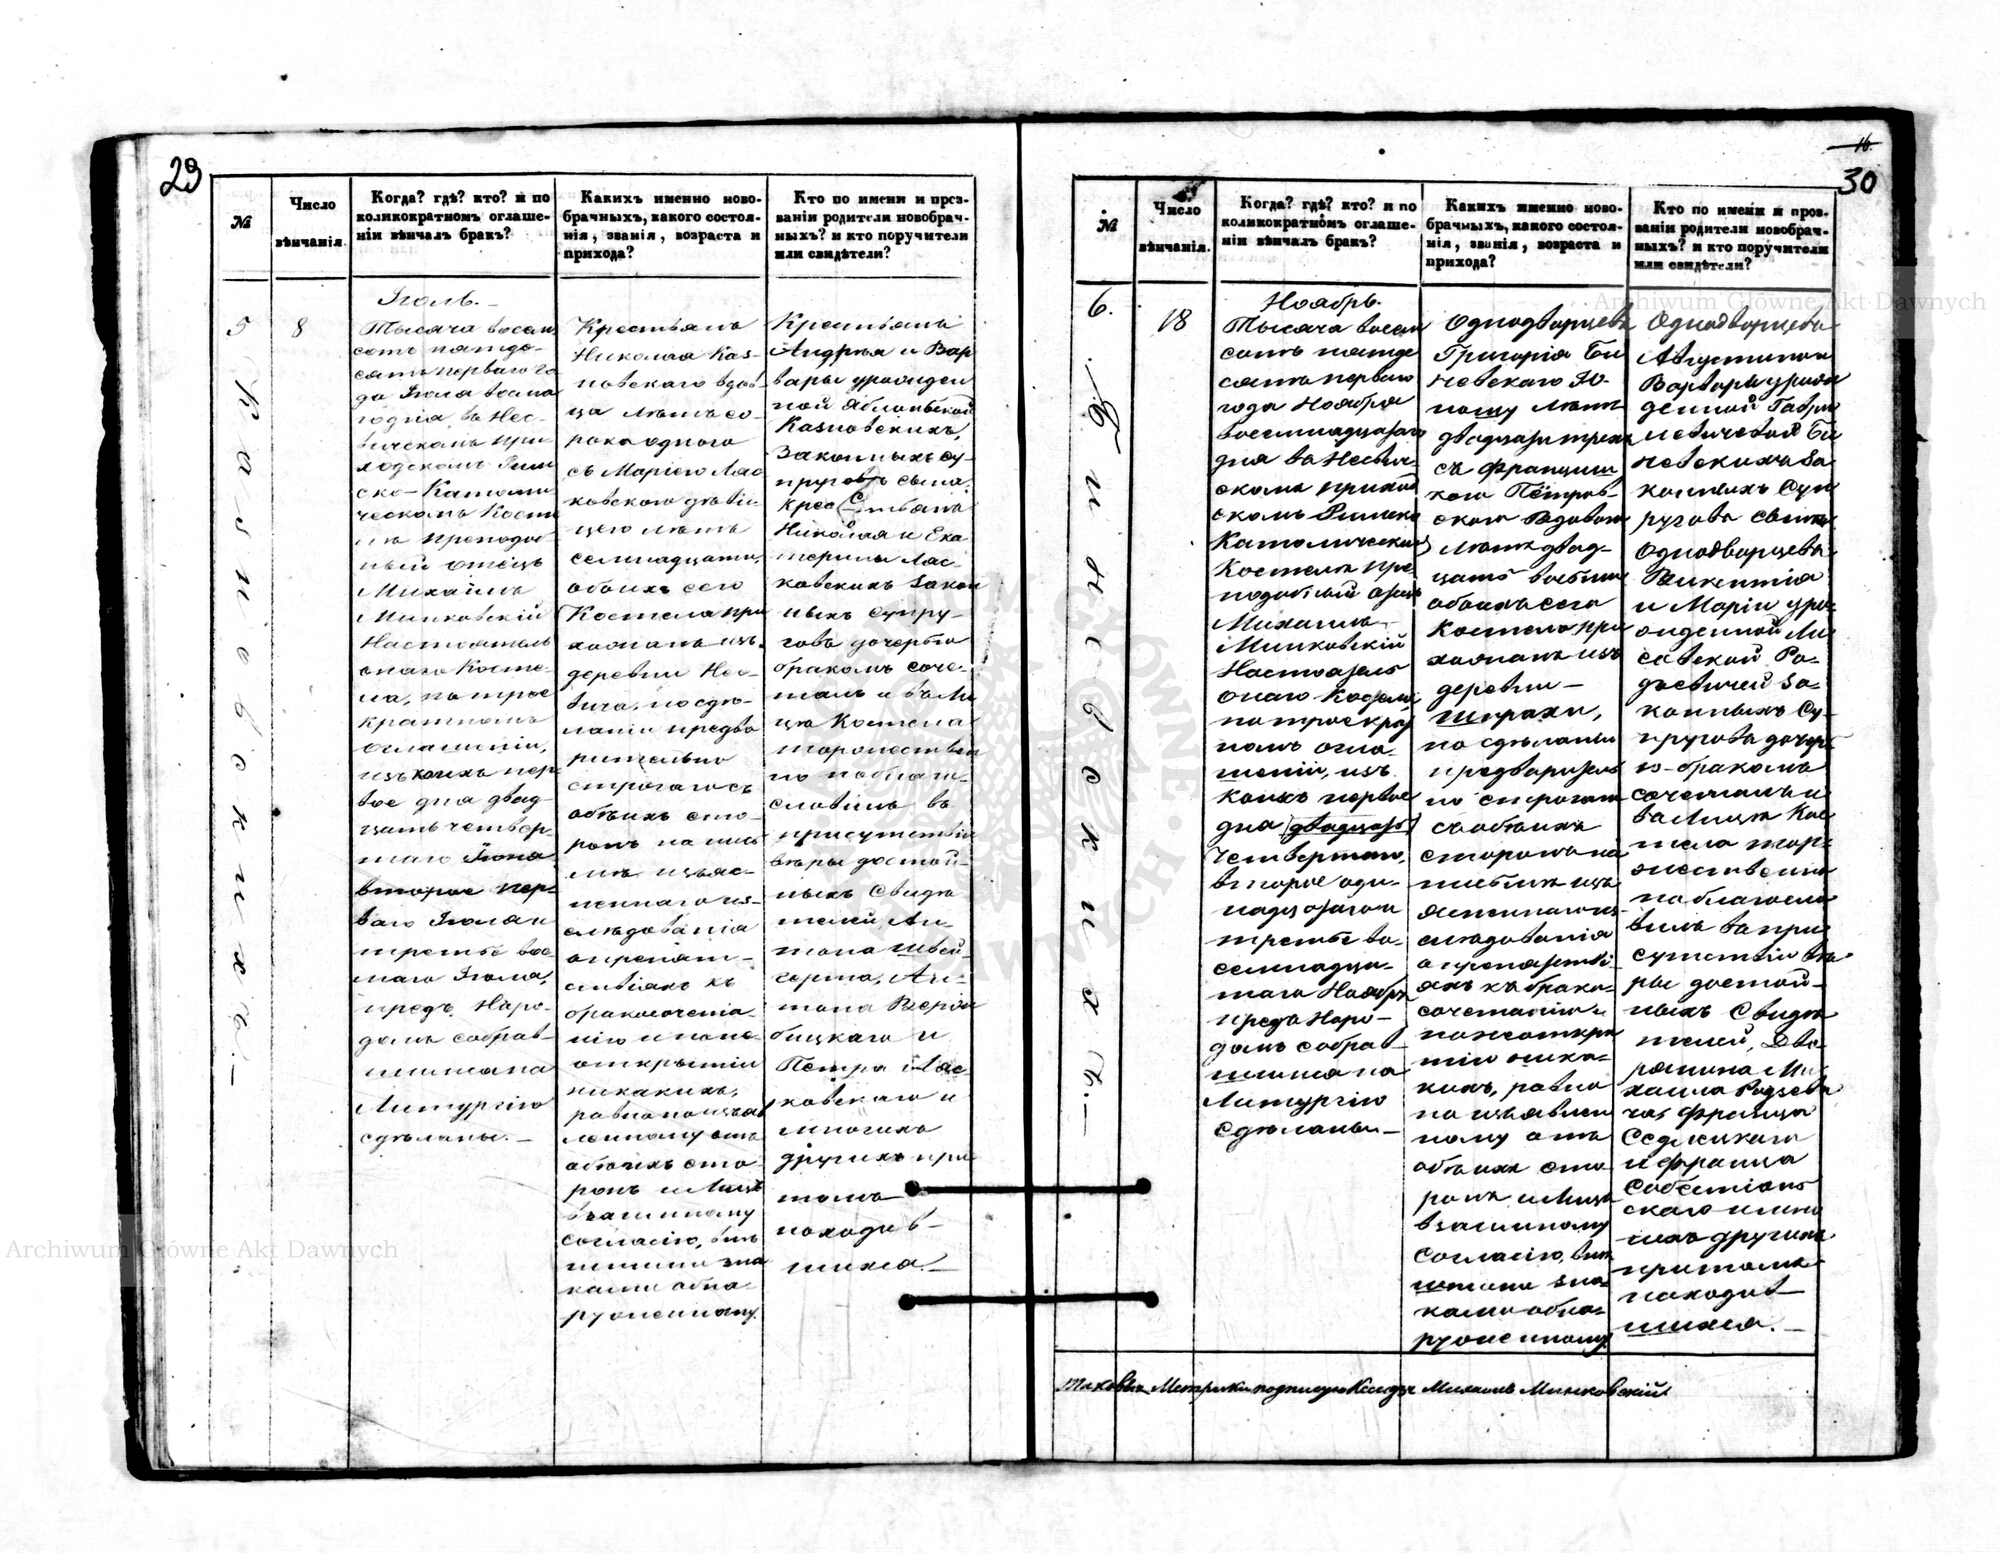 29
№
Число
вѣнчанія.
Когда? гдѣ? кто? и по
коликократномъ оглаше-
ніи вѣнчалъ бракъ?
Какихъ именно ново-
брачныхъ, какого состоя-
нія, званія, возраста и
прихода?
Кто по имени и проз-
ваніи родители новобрач-
ныхъ? и кто поручители
или свидѣтели?
5
8
Казновскихъ.—
Іюль.—
Тысяча восем
сотъ пятде-
сятъ перваго го
да Іюля восмаго
дня, въ Нес-
вичскомъ при
ходскомъ Рим
ско-Католи
ческомъ Косте
лѣ преподоб
ный отецъ
Михаилъ
Минковскій
Настоятель
онаго Косте-
ла, по трое
кратномъ
оглашеніи,
изъ коихъ пер
вое дня двад
цать четвер
таго Іюня
второе пер-
ваго Іюля и
третье вос
маго Іюля,
предъ Наро-
домъ собрав-
шимся на
Литургію
сдѣланы.—
Крестьянъ
Николая Каз-
новскаго вдов-
ца лѣтъ со-
рока одного
съ Маріею Ляс
ковскою дѣви
цею лѣтъ
семнадцати,
обоихъ сего
Костела при
хожанъ изъ
деревни Нес-
вича, по сдѣ-
ланіи предва
рительно
строгаго съ
обѣихъ сто-
ронъ на пись
мѣ изъяс-
неннаго из-
слѣдованія
о препят-
ствіяхъ къ
бракосочета-
нію и по не-
открытіи
никакихъ,
равно по изъяв
ленному отъ
обоихъ сто-
ронъ и лицъ
взаимному
согласію, внѣ
шними зна
ками обна-
руженному.
Крестьянъ
Андрея и Вар
вары урожден
ной Яблонской
Казновскихъ,
Законныхъ су-
пруговъ сына,
Крестьянъ
Николая и Ека
терины Ляс-
ковскихъ закон
ныхъ супру-
говъ дочерью
бракомъ соче-
талъ и въ Ли
цѣ Костела
торжествен
но поблаго-
словилъ въ
присутствіи
вѣры достой-
ныхъ Свидѣ
телей, Ан-
тона Швей-
герта, Ан-
тона Вѣржи
бицкаго и
Петра Ляс
ковскаго и
многихъ
другихъ при
томъ
находив-
шихся.—
16
30
№
Число
вѣнчанія.
Когда? гдѣ? кто? и по
коликократномъ оглаше-
ніи вѣнчалъ бракъ?
Какихъ именно ново-
брачныхъ, какого состоя-
нія, званія, возраста и
прихода?
Кто по имени и проз-
ваніи родители новобрач-
ныхъ? и кто поручители
или свидѣтели?
6.
18
Биневскихъ.—
Ноябрь.
Тысяча восем
сотъ пятде
сятъ перваго
года Ноября
восемнадцатаго
дня въ Несвич-
скомъ приход
скомъ Римско
Католическомъ
Костелѣ пре-
подобный отецъ
Михаилъ
Минковскій
Настоятель
онаго Костела
по троекрат
номъ огла-
шеніи, изъ
коихъ первое
дня двадцать
четвертаго,
второе оди-
надцатаго и
третье во-
семнадца-
таго Ноября
предъ Наро-
домъ собрав-
шимся на
Литургію
Сдѣланы.—
Однодворцевъ
Григорія Би
невскаго Ю-
ношу лѣтъ
двадцати трехъ
съ Францищ
кою Петров-
скою Вдовою
лѣтъ двад-
цать восьми
обоихъ сего
Костела при
хожанъ изъ
деревни—
Шпрахи,
по сдѣланіи
предваритель
но строгаго
съ обѣихъ
сторонъ на
письмѣ изъ
ясненнаго из-
слѣдованія
о препятстві-
яхъ къ брако-
сочетанію и
по неоткры
тіи ника-
кихъ, равно
по изъявлен
ному отъ
обѣихъ сто-
ронъ и лицъ
взаимному
Согласію, внѣ
шними зна-
ками обна-
руженному.
Однодворцевъ
Августина и
Варвары урож
денной Гаври
левичевой Би
невскихъ за
конныхъ Суп
руговъ сына
Однодворцевъ
Викентія
и Маріи уро-
жденной Ли
севской Ро-
дзевичей за-
конныхъ Су-
пруговъ дочерь
ю бракомъ
сочеталъ и
въ Лицѣ Кос
тела тор-
жественно
поблагосло
вилъ въ при
сутствіи вѣ
ры достой-
ныхъ Свидѣ
телей, Дво-
рянина Ми-
хаила Родзеви
ча, Франца
Седлецкаго
и Франца
Собетіон
скаго и мно
гихъ другихъ
притомъ
находив-
шихся.—
Таковыя Метрики подписую Ксендзъ Михаилъ Минковскій
Archiwum Główne Akt Dawnych
Archiwum Główne Akt Dawnych